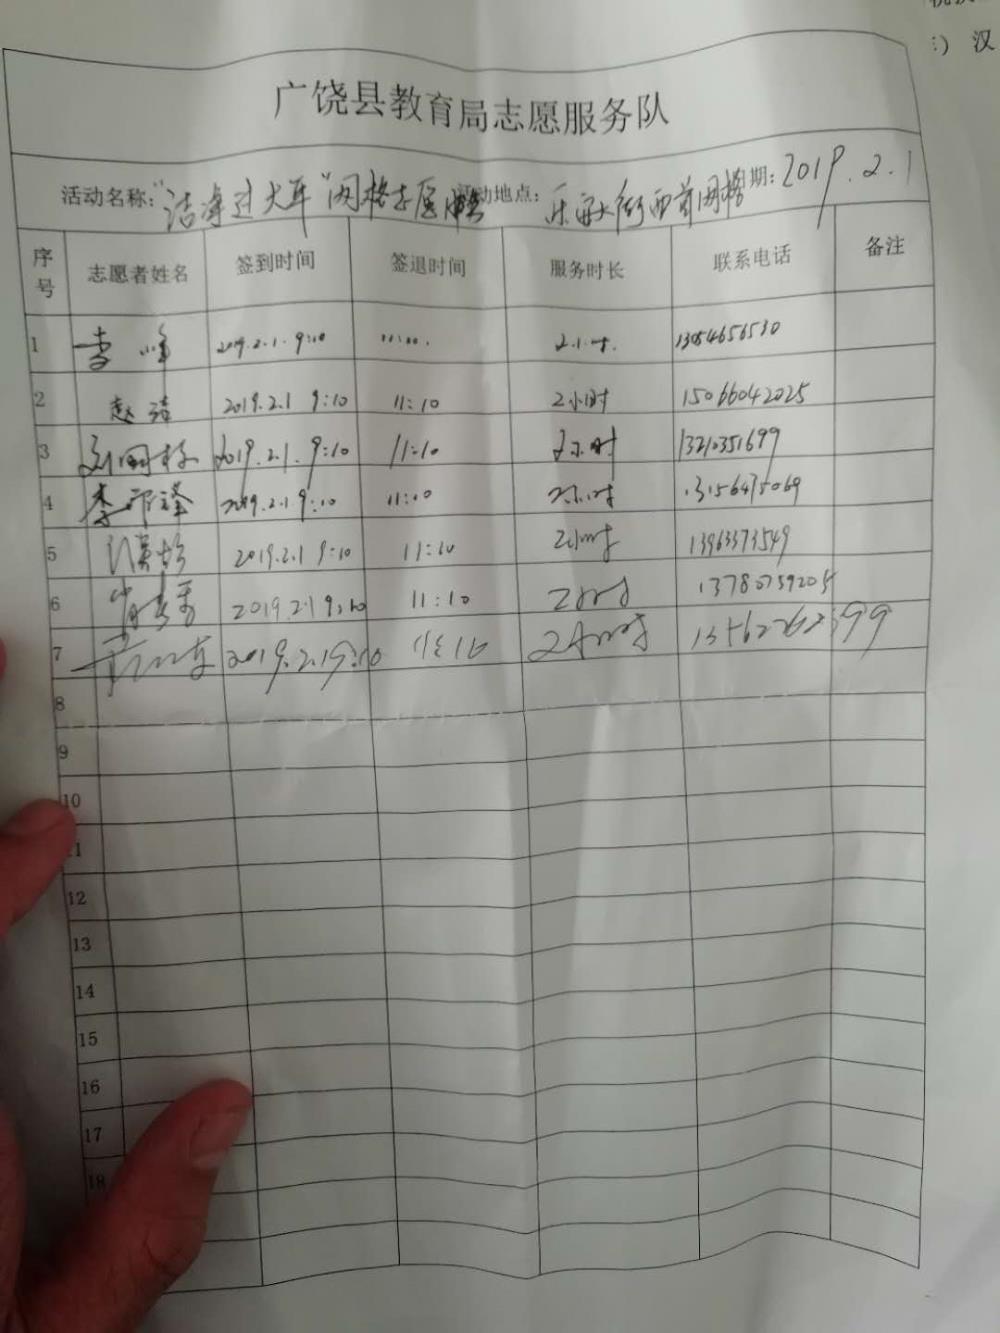 汉
广饶县教育局志愿服务队
活动名称：“洁净过大年”网格 活动地点： 乐安大街西首网格 日期：2019.2.1
序号 志愿者姓名 签到时间 签退时间 服务时长 联系电话 备注
1 李峰 2019.2.1 9:10 2小时 13054656530
2 赵洁 2019.2.1 9:10 11:10 2小时 15066042025
3 2019.2.1 9:10 11:10 2小时 13210351699
4 李 2019.2.1 9:10 11:10 2小时 13156475069
5 2019.2.1 9:10 11:10 2小时 13963373549
6 2019.2.1 9:10 11:10 2小时 13780759205
7 2019.2.1 9:10 11:10 2小时
8
9
10
11
12
13
14
15
16
17
18